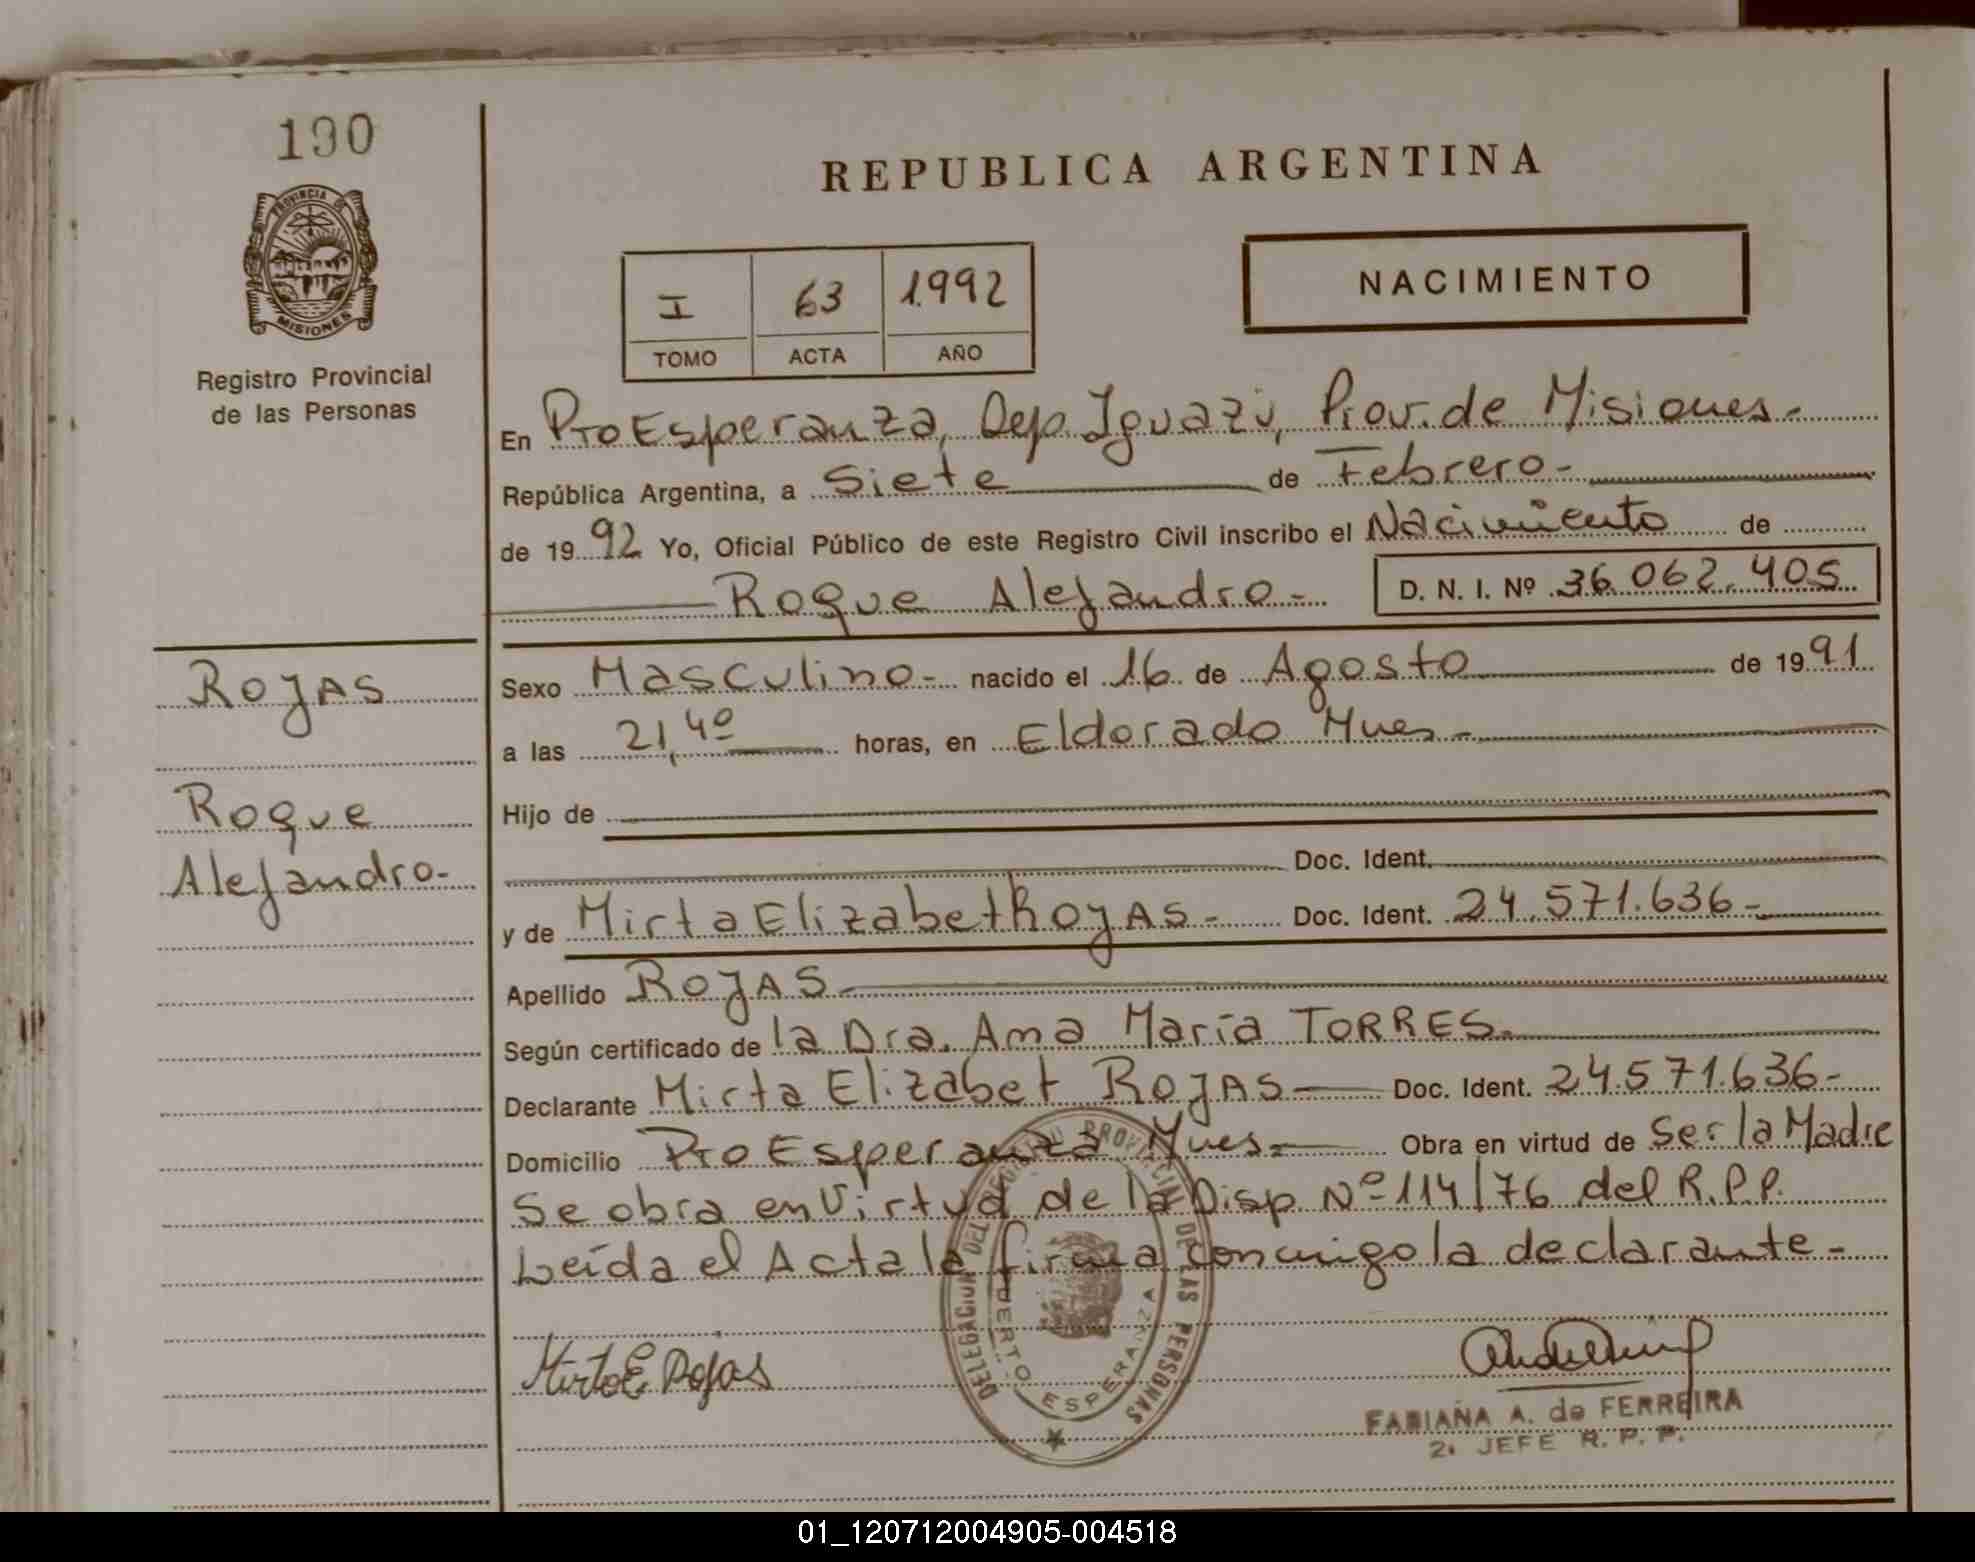 190
PROVINCIA DE
MISIONES
Registro Provincial
de las Personas
REPUBLICA ARGENTINA
I 63 1.992
TOMO ACTA AÑO
NACIMIENTO
En Pto Esperanza, Dep. Iguazú, Prov. de Misiones.-
República Argentina, a Siete de Febrero-
de 1992 Yo, Oficial Público de este Registro Civil inscribo el Nacimiento de
Roque Alejandro- D. N. I. Nº 36.062.405
ROJAS
Roque
Alejandro-
Sexo Masculino- nacido el 16 de Agosto de 1991
a las 21,40 horas, en Eldorado Mnes-
Hijo de
Doc. Ident.
y de Mirta Elizabet ROJAS- Doc. Ident. 24.571.636-
Apellido ROJAS-
Según certificado de la Dra. Ama María TORRES-
Declarante Mirta Elizabet ROJAS Doc. Ident. 24.571.636-
Domicilio Pto Esperanza Mnes- Obra en virtud de Ser la Madre
Se obra en Virtud de la Disp Nº 114/76 del R.P.P.
Leída el Acta la firma conmigo la declarante-
DELEGACION DEL REGISTRO PROVINCIAL DE LAS PERSONAS
PUERTO ESPERANZA
Mirta E. Rojas
FABIANA A. de FERREIRA
2. JEFE R. P. P.
01_120712004905-004518